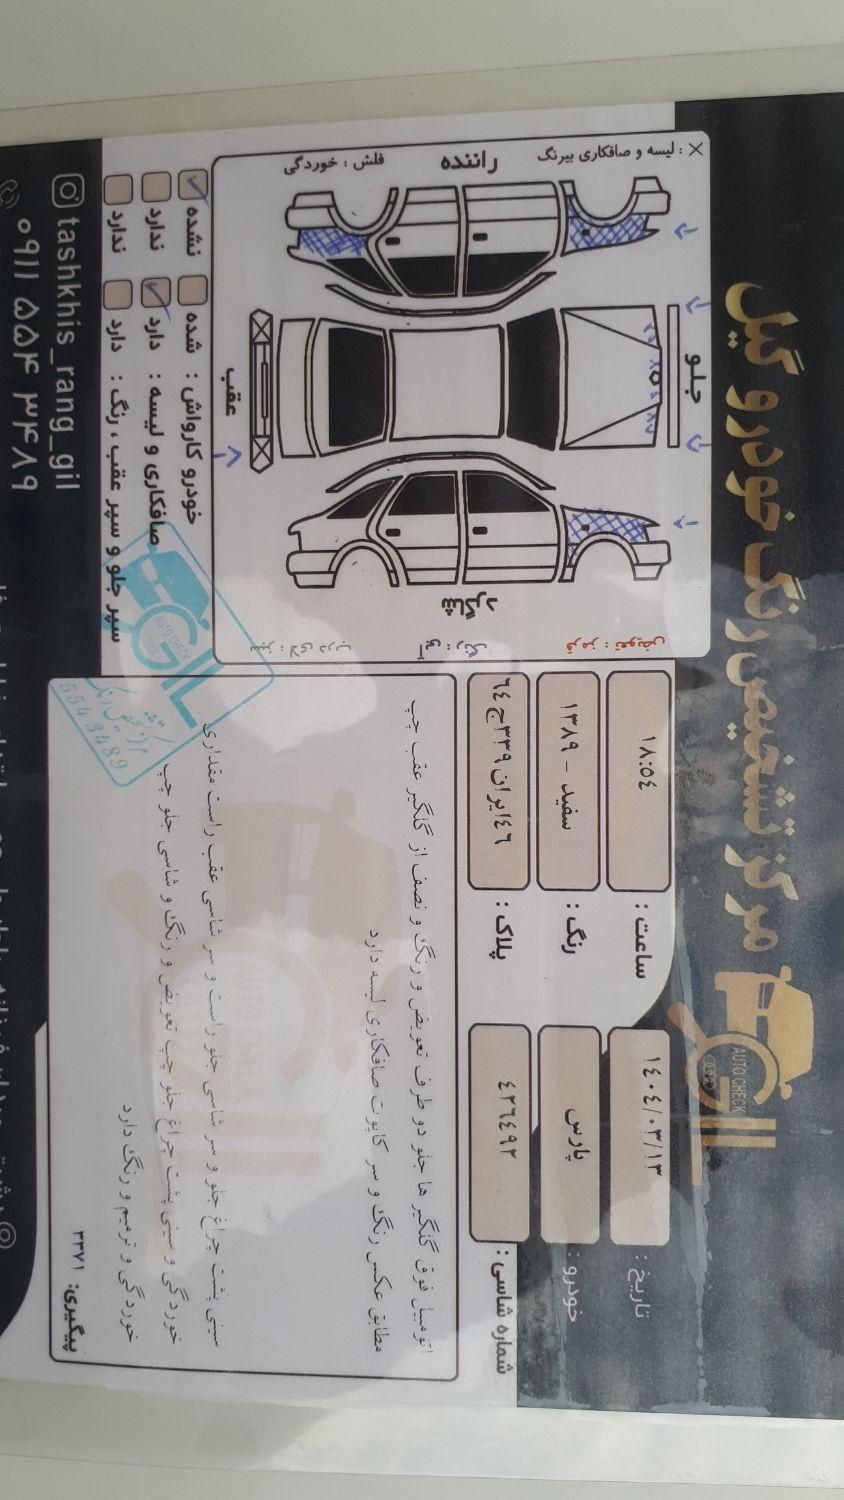 مرکز تشخیص رنگ خودرو گیل
AUTO CHECK
GIL
تاریخ : ۱۴۰۴/۰۳/۱۳
ساعت : ۱۸:۵٤
خودرو : پارس
رنگ : سفید - ۱۳۸۹
شماره شاسی : ٤٢٦٤٩٢
پلاک : ٤٦ایران۳۳۹ج٦٤
اتومبیل فوق گلگیر ها جلو دو طرف تعویض و رنگ و نصف از گلگیر عقب چپ
مطابق عکس رنگ و سر کاپوت صافکاری لیسه دارد
سینی پشت چراغ جلو و سر شاسی جلو راست و سر شاسی عقب راست مقداری
خوردگی و سینی پشت چراغ جلو چپ تعویض و رنگ و شاسی جلو چپ
خوردگی و ترمیم و رنگ دارد
پیگیری: ۳۳۷۱
X : لیسه و صافکاری بیرنگ
راننده
فلش : خوردگی
جلو
عقب
شاگرد
قرمز : تعویض
آبی : رنگ
خودرو کارواش : شده نشده
صافکاری و لیسه : دارد ندارد
سپر جلو و سپر عقب ، رنگ : دارد ندارد
AUTO CHECK
GIL
مرکز تشخیص رنگ
5543489
tashkhis_rang_gil
۰۹۱۱ ۵۵۴ ۳۴۸۹